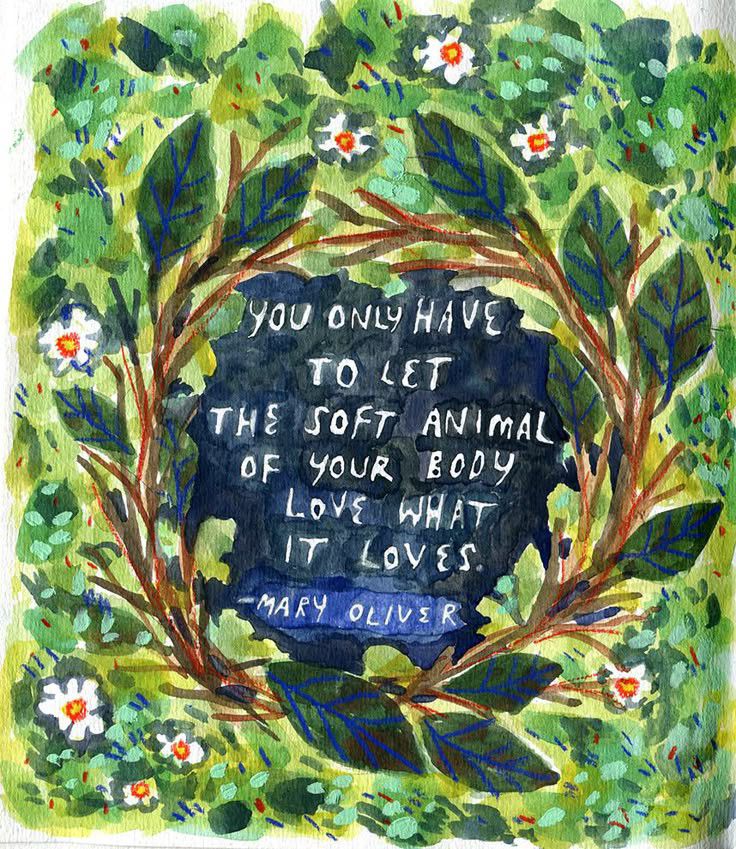 YOU ONLY HAVE
TO LET
THE SOFT ANIMAL
OF YOUR BODY
LOVE WHAT
IT LOVES.
-MARY OLIVER